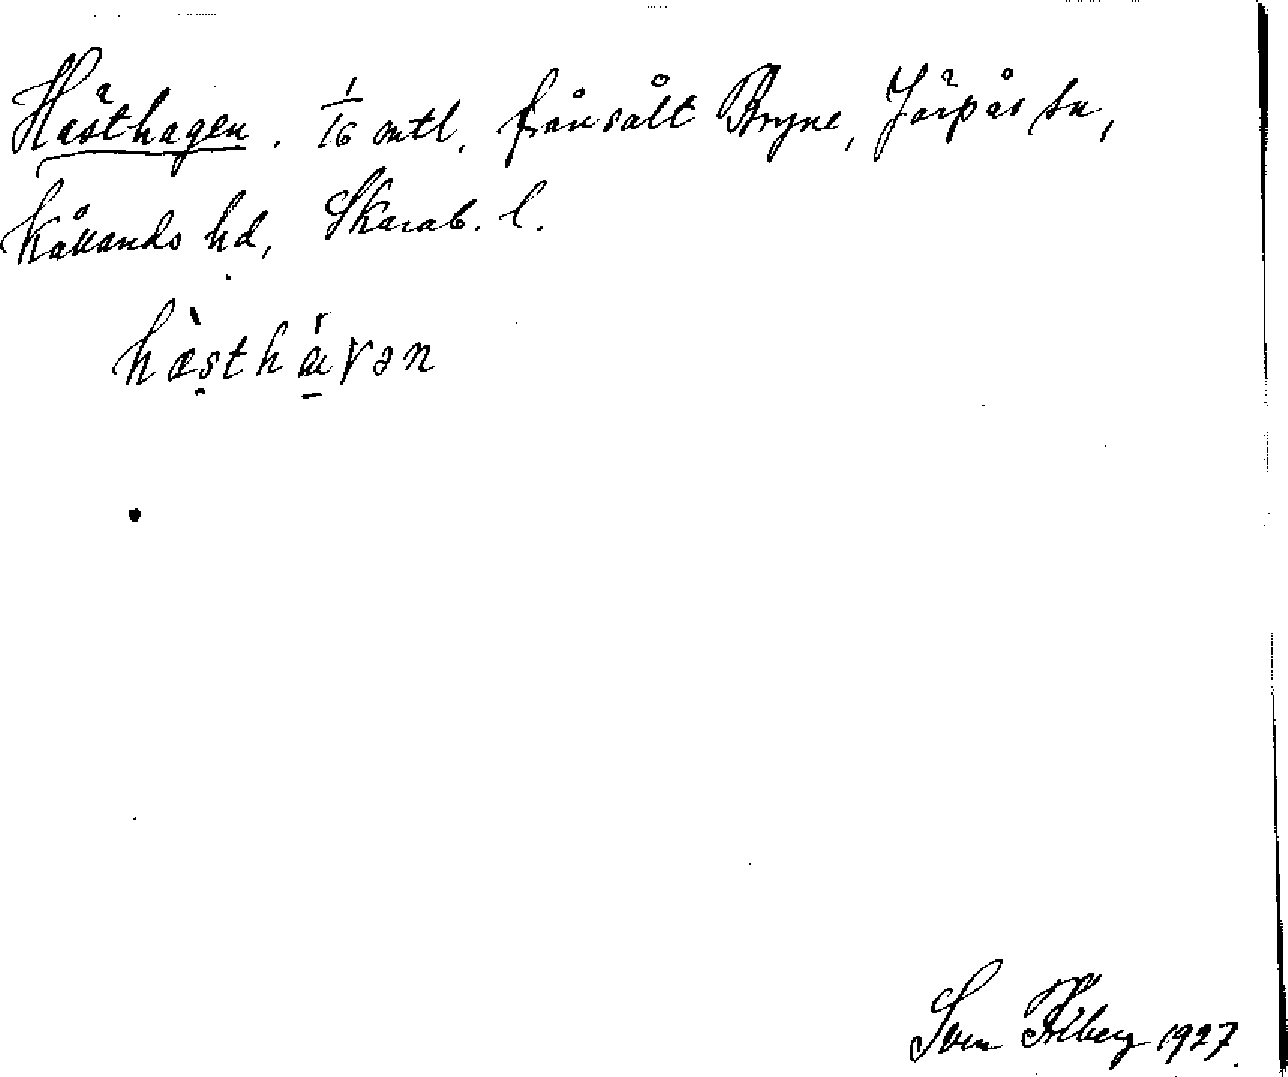 Hästhagen. 1/16 mtl. frånsålt Bryne, Järpås sn,
Kållands hd, Skarab. l.
hæ̀sthávən
Sven 1927.